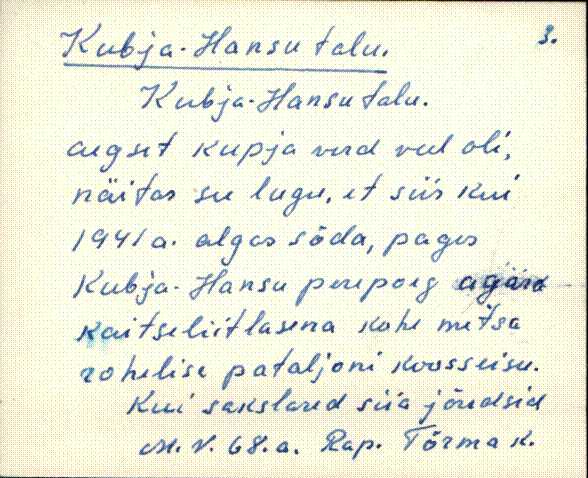 Kubja-Hansu talu. 3.
Kubja-Hansu talu.
aegset kupja verd veel oli,
näitas su lugu, et siis kui
1941 a. algas sõda, pages
Kubja-Hansu perepoeg agara
kaitseliitlasena kohe metsa
rohelise pataljoni koosseisu.
Kui sakslased siia jõudsid
M.V. 68.a. Rap. Tõrma k.